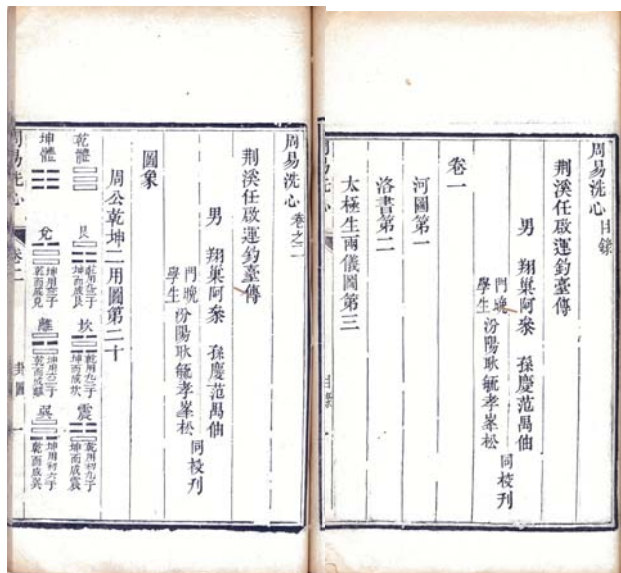 周易洗心 目錄
荆溪任啟運釣臺傳
男 翔巢阿叅 孫慶范禺仙
門晚學生 汾陽耿毓孝峯松
同校刊
卷一
河圖第一
洛書第二
太極生兩儀圖第三
周易洗心 目錄 一
周易洗心 卷之二
荆溪任啟運釣臺傳
男 翔巢阿叅 孫慶范禺仙
門晚學生 汾陽耿毓孝峯松
同校刊
圖象
周公乾坤二用圖第二十
乾體 艮 乾用九三于坤而成艮 坎 乾用九二于坤而成坎 震 乾用初九于坤而成震
坤體 兌 坤用六三于乾而成兌 離 坤用六二于乾而成離 巽 坤用初六于乾而成巽
周易洗心 卷二 卦圖 一